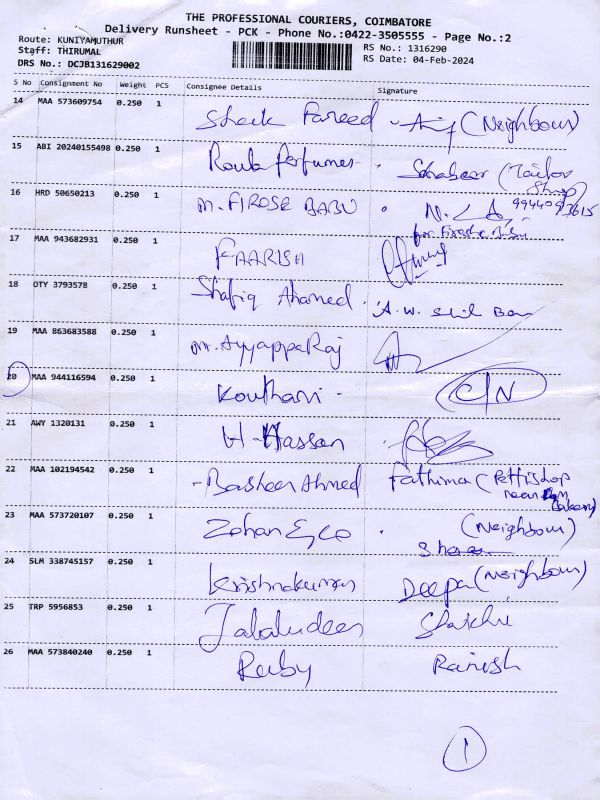 THE PROFESSIONAL COURIERS, COIMBATORE
Delivery Runsheet - PCK - Phone No.:0422-3505555 - Page No.:2
Route: KUNIYAMUTHUR
RS No.: 1316290
Staff: THIRUMAL
RS Date: 04-Feb-2024
DRS No.: DCJB131629002
S No Consignment No Weight PCS Consignee Details Signature
14 MAA 573609754 0.250 1 Sheik Fareed (Neighbour)
15 ABI 20240155498 0.250 1 Perfumes Shabeer (Tailor
Shop)
16 HRD 50650213 0.250 1 M. FIROSE BABU 9944093615
for Firose Babu
17 MAA 943682931 0.250 1 FAARISH
18 OTY 3793578 0.250 1 Shafiq Ahamed A.W.
19 MAA 863683588 0.250 1 Mr. Ayyappa Raj
20 MAA 944116594 0.250 1 C/N
21 AWY 1320131 0.250 1 H. Hassan
22 MAA 102194542 0.250 1 - Basheer Ahmed Fathima (Pettishop
near
23 MAA 573720107 0.250 1 Zohan (Neighbour)
24 SLM 338745157 0.250 1 Krishnakumar Deepa (Neighbour)
25 TRP 5956853 0.250 1 Jalaludeen
26 MAA 573840240 0.250 1 Ruby Ramesh
1